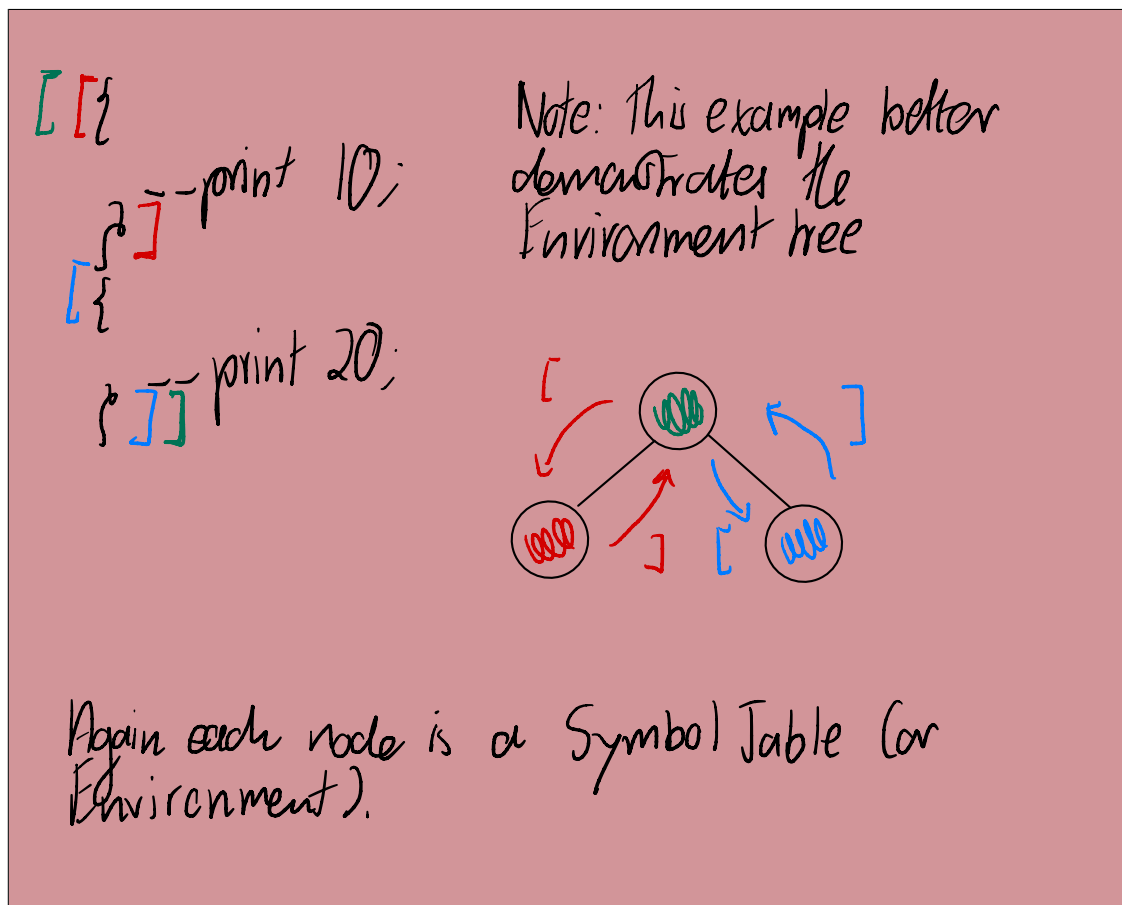 [ [ {
-- print 10;
} ]
[ {
-- print 20;
} ] ]
Note: This example better
demonstrates the
Environment tree
[
]
]
[
Again each node is a Symbol Table (or
Environment).